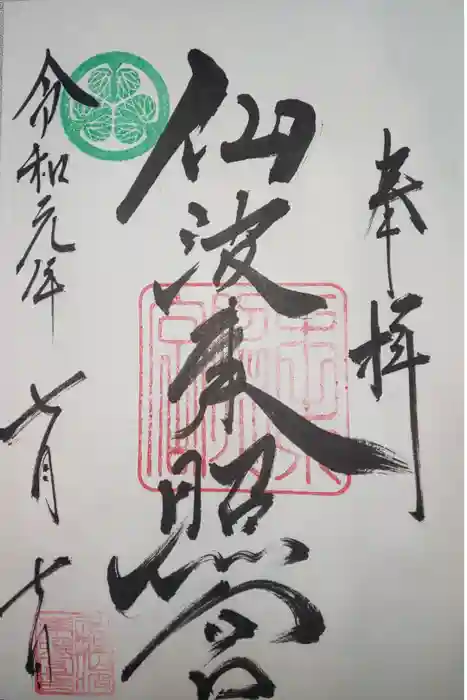 奉拝
仙波東照宮
令和元年七月七日